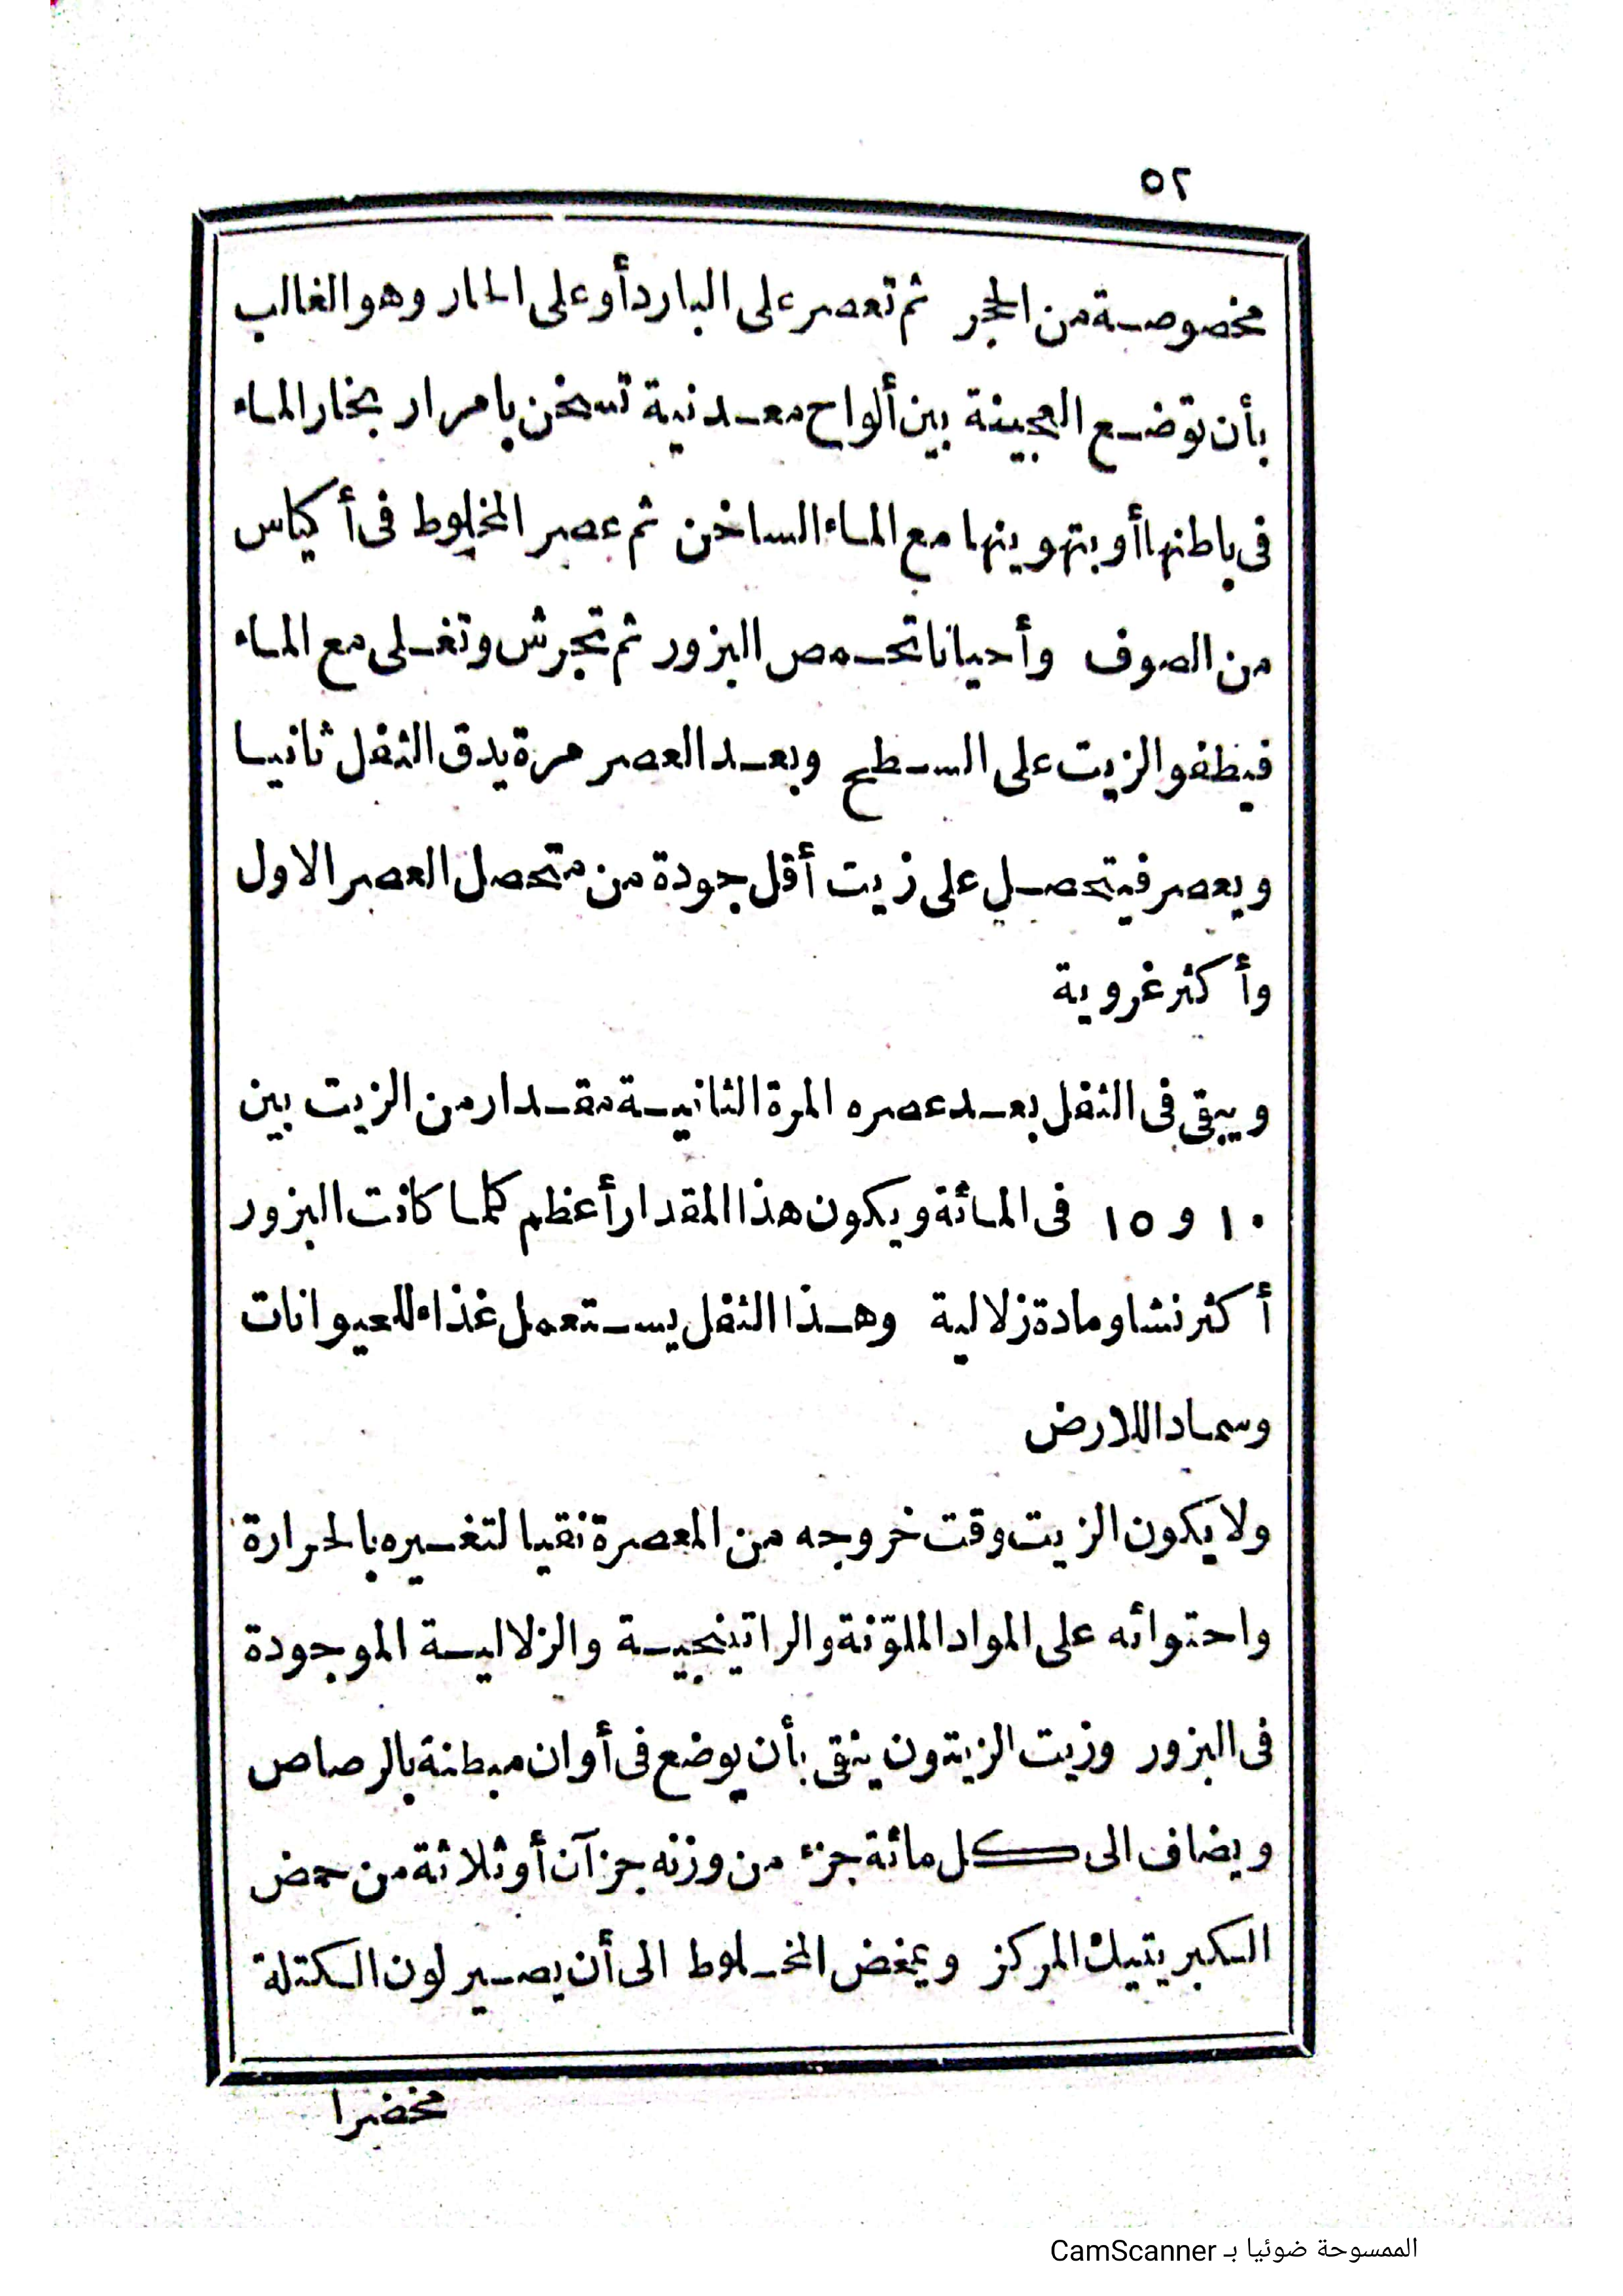 ٥٢
مخصوصة من الحجر ثم تعصر على البارد أو على الحار وهو الغالب
بأن توضع العجينة بين ألواح معدنية تسخن بامرار بخار الماء
فى باطنها أو بتهوينها مع الماء الساخن ثم عصر المخلوط فى أكياس
من الصوف وأحيانا تحمص البزور ثم تجرش وتغلى مع الماء
فيطفو الزيت على السطح وبعد العصر مرة يدق الثفل ثانيا
ويعصر فيتحصل على زيت أقل جودة من متحصل العصر الاول
وأكثر غروية
ويبقى فى الثفل بعد عصره المرة الثانية مقدار من الزيت بين
١٠ و ١٥ فى المائة ويكون هذا المقدار أعظم كلما كانت البزور
أكثر نشا ومادة زلالية وهذا الثفل يستعمل غذاء للحيوانات
وسمادا للارض
ولا يكون الزيت وقت خروجه من المعصرة نقيا لتغيره بالحرارة
واحتوائه على المواد الملوّنة والراتينجية والزلالية الموجودة
فى البزور وزيت الزيتون ينقى بأن يوضع فى أوان مبطنة بالرصاص
ويضاف الى كل مائة جزء من وزنه جزآن أو ثلاثة من حمض
الكبريتيك المركز ويمخض المخلوط الى أن يصير لون الكتلة
مخضرا
الممسوحة ضوئيا بـ CamScanner